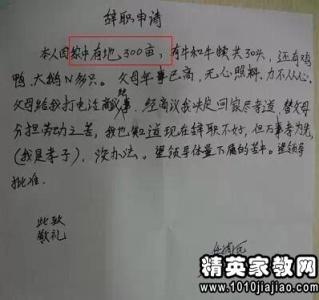 辞职申请
本人因家中有地300亩,有牛和牛犊共30头,还有鸡
鸭、大鹅N多只。父母年事已高,无心照料,力不从心。
父母给我打电话商议,经商议我决定回家尽孝道,替父母
分担劳动之苦,我也知道现在辞职不好,但万事孝为先
(我是孝子),没办法。望领导体量下属的苦中。望领导
批准。
此致
敬礼
精英家教网
www.1010jiajiao.com